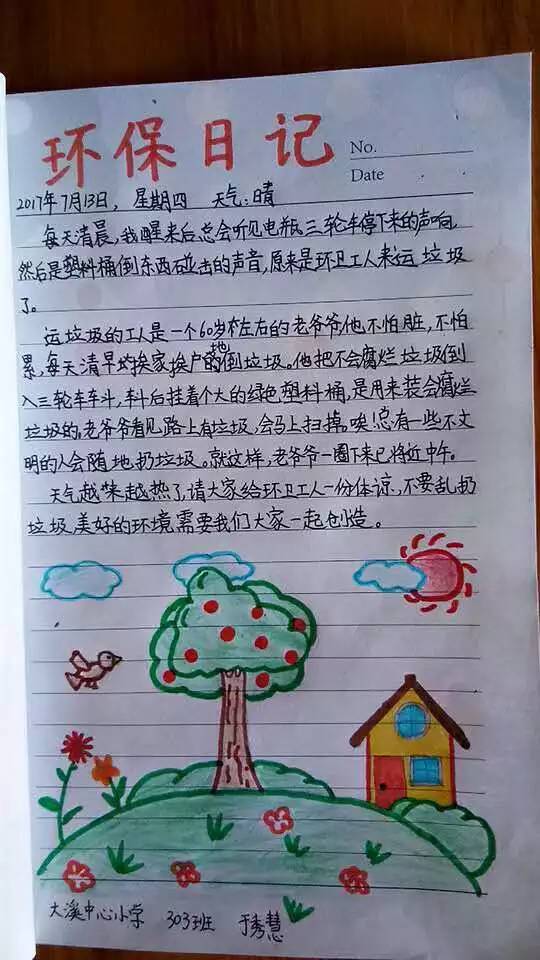 环保日记
No.
Date
2017年7月13日，星期四 天气：晴
每天清晨，我醒来后总会听见电瓶三轮车停下来的声响，
然后是塑料桶倒东西碰击的声音，原来是环卫工人来运垃圾
了。
运垃圾的工人是一个60岁左右的老爷爷，他不怕脏，不怕
累，每天清早均挨家挨户地倒垃圾。他把不会腐烂垃圾倒
入三轮车车斗，车斗后挂着个大的绿色塑料桶，是用来装会腐烂
垃圾的。老爷爷看见路上有垃圾，会马上扫掉。唉！总有一些不文
明的人会随地扔垃圾。就这样，老爷爷一圈下来已将近中午。
天气越来越热了，请大家给环卫工人一份体谅，不要乱扔
垃圾，美好的环境需要我们大家一起创造。
大溪中心小学 303班 于秀慧